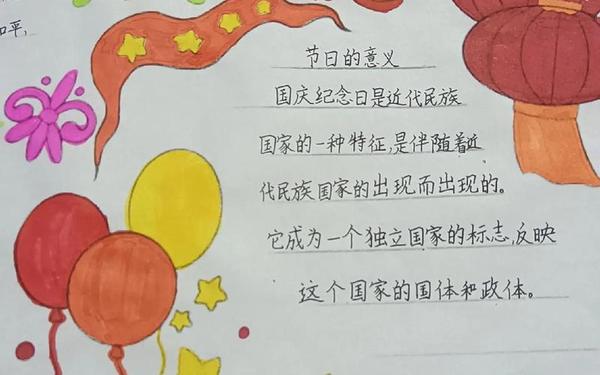 和平,
节日的意义
国庆纪念日是近代民族
国家的一种特征,是伴随着近
代民族国家的出现而出现的。
它成为一个独立国家的标志,反映
这个国家的国体和政体。